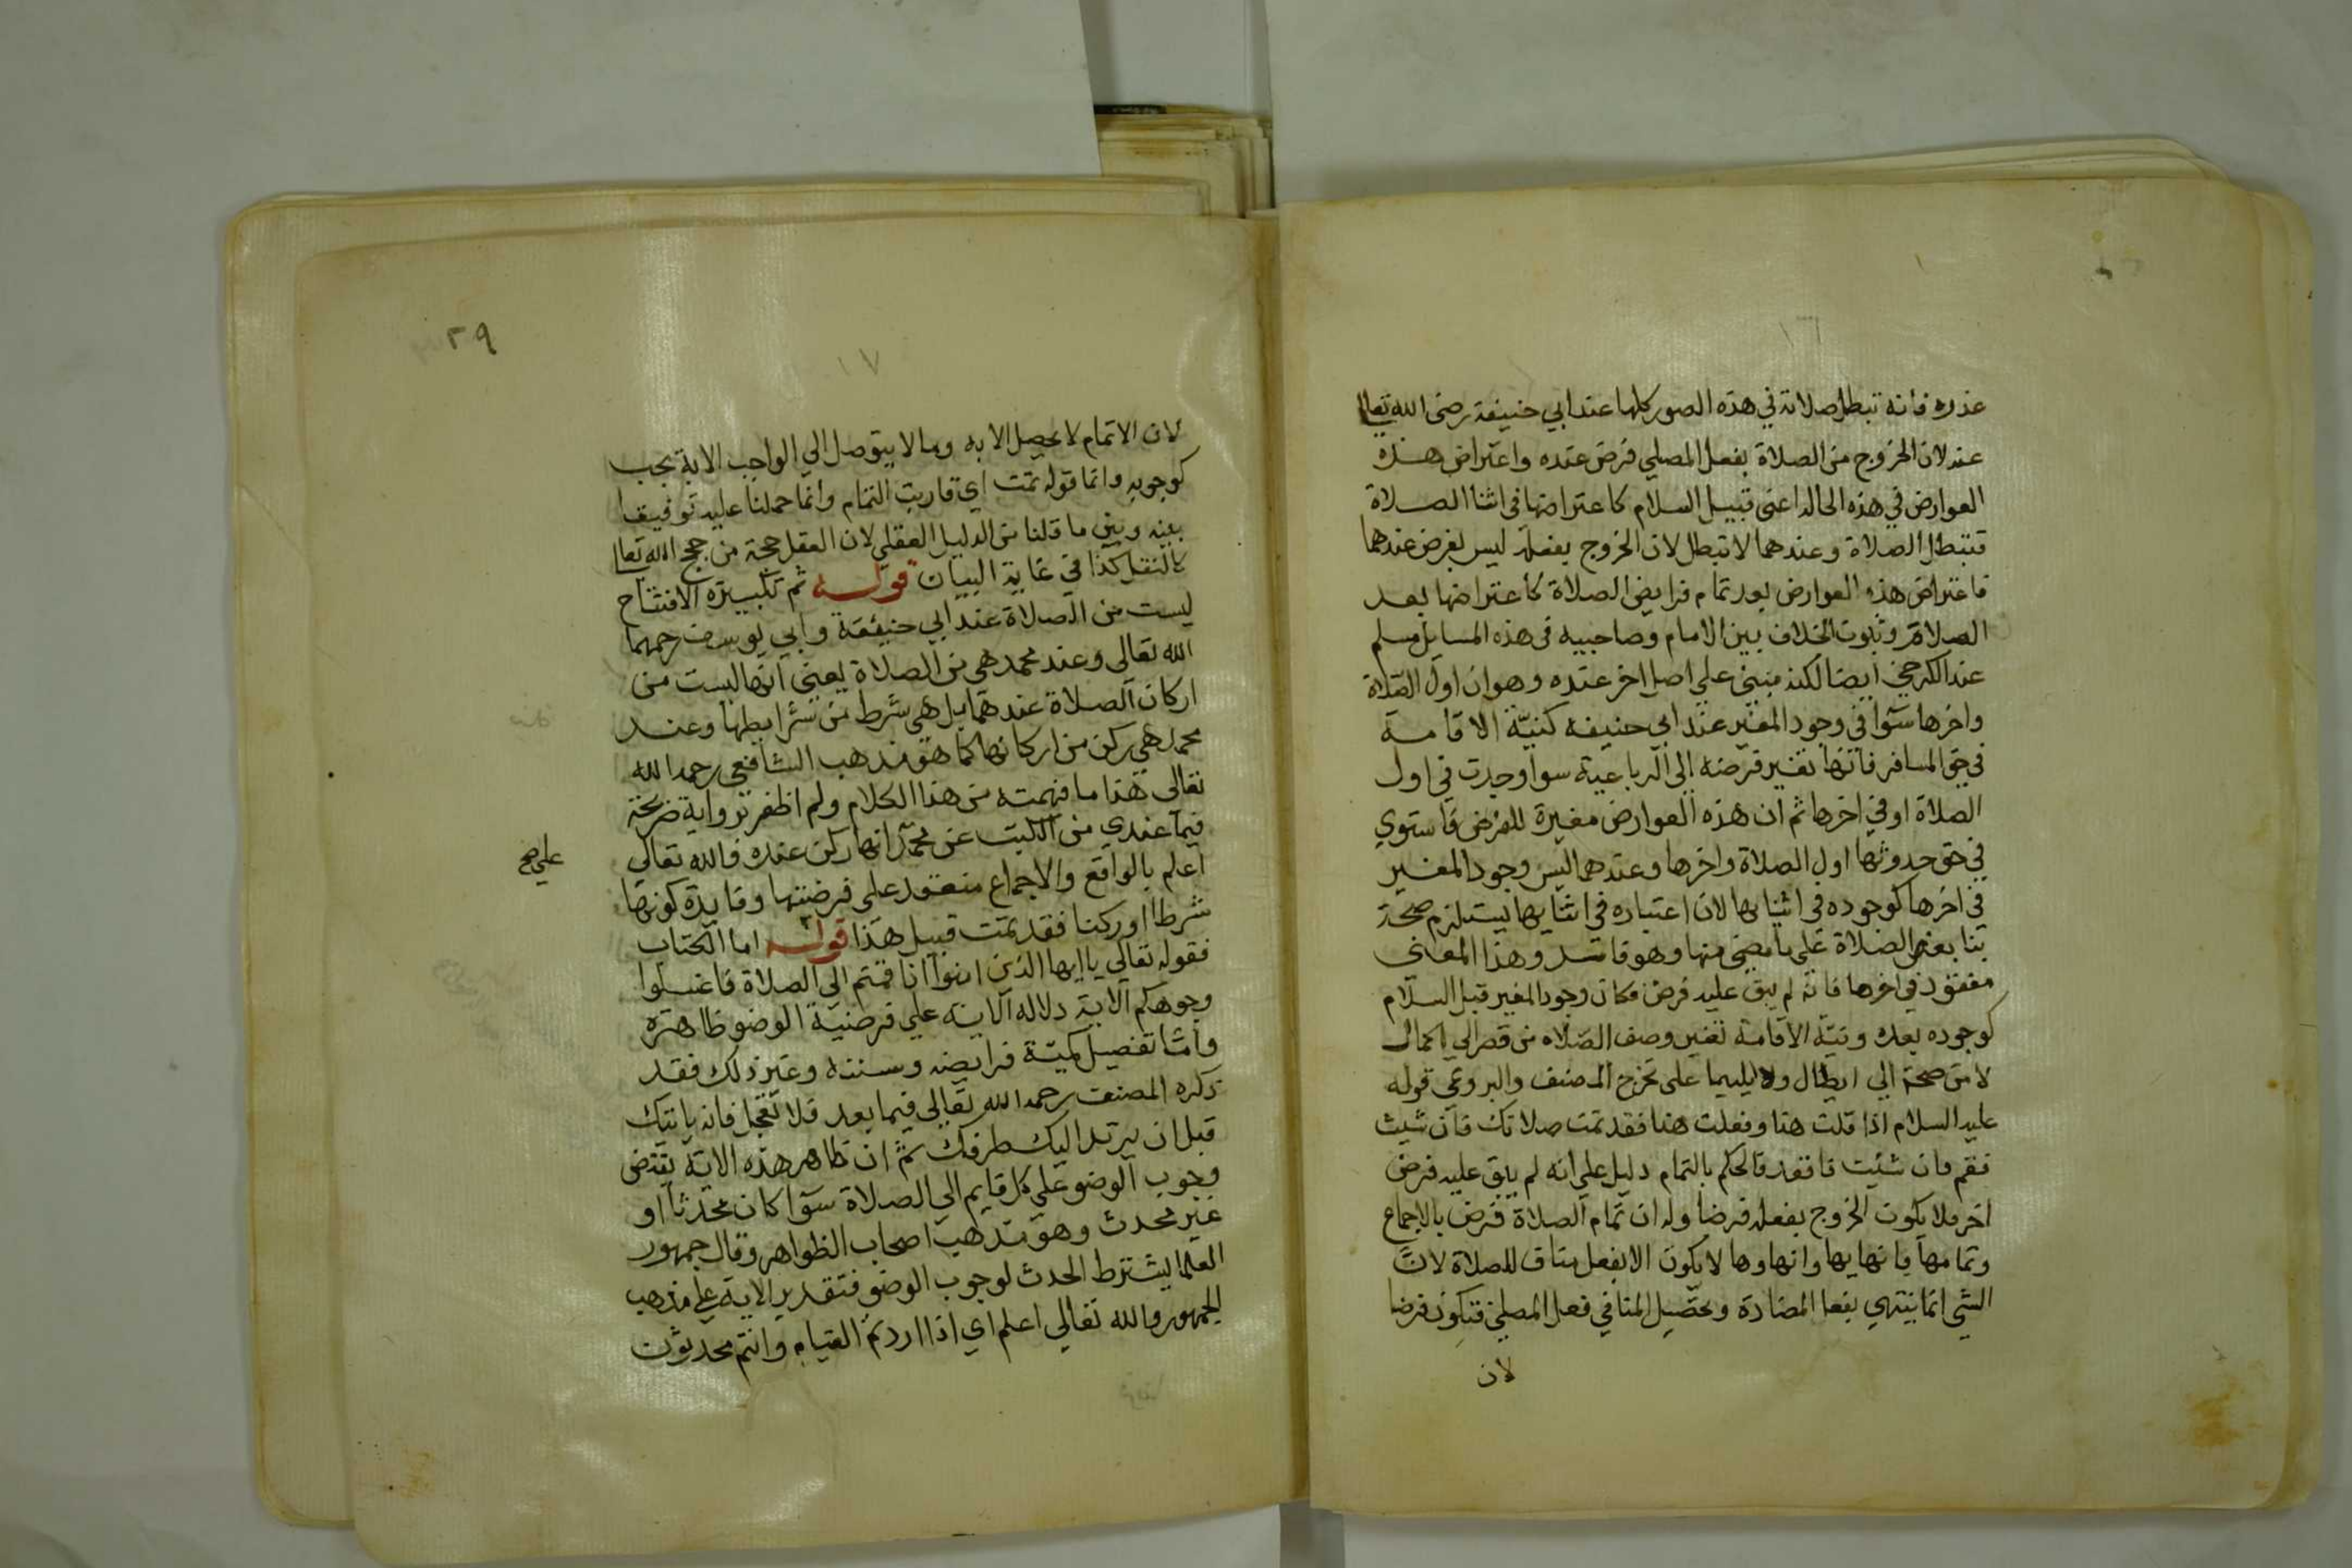 ١٦
عذره فانه تبطل صلاته في هذه الصور كلها عند ابي حنيفة رضى الله تعالى
عنه لان الخروج من الصلاة بفعل المصلي فرض عنده واعتراض هذه
العوارض في هذه الحالة اعنى قبيل السلام كاعتراضها في اثنا الصلاة
فتبطل الصلاة وعندهما لا تبطل لان الخروج بفعله ليس بفرض عندهما
فاعتراض هذه العوارض بعد تمام فرايض الصلاة كاعتراضها بعد
الصلاة وثبوت الخلاف بين الامام وصاحبيه في هذه المسايل مسلم
عند الكرخي ايضا لكنه مبنى علي اصل اخر عنده وهو ان اول الصلاة
واخرها سوآ في وجود المغير عند ابي حنيفه كنيّة الاقامة
في حق المسافر فانها تغير فرضه الى الرباعية سوآ وجدت في اول
الصلاة او في اخرها ثم ان هذه العوارض مغيرة للفرض فاستوي
في حق حدوثها اول الصلاة واخرها وعندهما ليس وجود المغير
في اخرها كوجوده في اثنايها لان اعتباره في اثنايها يستلزم صحة
بنا بعض الصلاة على ما مضى منها وهو فاسد وهذا المعنى
مفقود في اخرها فانه لم يبق عليه فرض فكان وجود المغير قبل السلام
كوجوده بعده ونيّة الاقامة تغير وصف الصلاه من قصر الي اكمال
لا من صحة الي ابطال ولا يليهما على تخرج المصنف والبردعي قوله
عليه السلام اذا قلت هذا وفعلت هذا فقد تمت صلاتك فان شيت
فقم وان شئت فاقعد فالحكم بالتمام دليل علي انه لم يبق عليه فرض
اخر فلا يكون الخروج بفعله فرضا وله ان تمام الصلاة فرض بالاجماع
وتمامها بانهايها وانهاوها لا يكون الا بفعل مناف للصلاة لان
الشي انما ينتهي بفعل المضادة وتحصيل المنافي فعل المصلي فتكون فرضا
لان
٢٩
١٧
لان الاتمام لا يحصل الا به وما لا يتوصل الي الواجب الا به يجب
كوجوبه وانما قوله تمت اي قاربت التمام وانما حملنا عليه توفيقا
بينه وبين ما قلنا من الدليل العقلي لان العقل حجة من حجج الله تعالى
كالنقل كذا في غاية البيان قوله ثم تكبيرة الافتتاح
ليست من الصلاة عند ابي حنيفة وابي يوسف رحمهما
الله تعالى وعند محمد هي من الصلاة يعنى انها ليست من
اركان الصلاة عندهما بل هي شرط من شرايطها وعند
محمد هي ركن من اركانها كما هو مذهب الشافعي رحمه الله
تعالى هذا ما فهمته من هذا الكلام ولم اظفر برواية صريحة
فيما عندي من الكتب عن محمد انها ركن عنده فالله تعالى
اعلم بالواقع والاجماع منعقود على فرضيتها وفايدة كونها
علي صح
شرطا او ركنا فقد تمت قبيل هذا قوله اما الكتاب
فقوله تعالي يا ايها الذين امنوا اذا قمتم الى الصلاة فاغسلوا
وجوهكم الآية دلاله الآية علي فرضية الوضو ظاهرة
وامّا تفصيل كميّة فرايضه وسننه وغير ذلك فقد
ذكره المصنف رحمه الله تعالى فيما بعد فلا تعجل فانه ياتيك
قبل ان يرتد اليك طرفك ثم ان ظاهر هذه الاية يقتضى
وجوب الوضو علي كل قايم الي الصلاة سوآ كان محدثا او
غير محدث وهو مذهب اصحاب الظواهر وقال جمهور
العلما يشترط الحدث لوجوب الوضو فتقدير الاية على مذهب
الجمهور والله تعالي اعلم اي اذا اردتم القيام وانتم محدثون